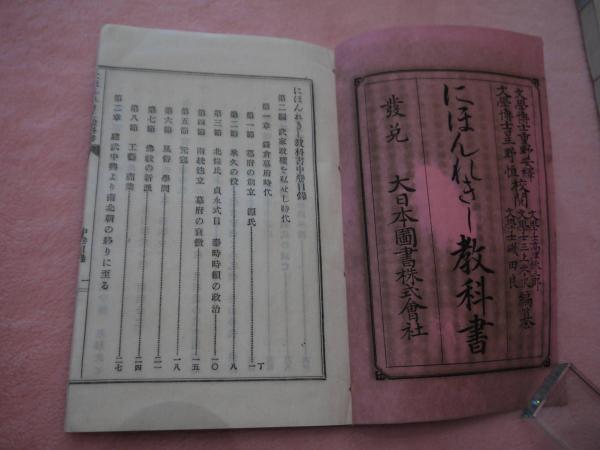 文學博士重野安繹
文學博士星野恒 校閲
文學士高津鍬三郎
文學士三上參次
文學士磯田良
編纂
にほんれきし教科書
發兌 大日本圖書株式會社
にほんれきし教科書中卷目錄
第二編 武家政權を私せし時代
第一章 鎌倉幕府時代
丁
第一節 幕府の創立 源氏 一
第二節 承久の役 八
第三節 北條氏 貞永式目 泰時時賴の政治 一〇
第四節 兩統迭立 幕府の衰微 一五
第五節 元寇 一八
第六節 風俗 學問 二一
第七節 佛敎の新派
第八節 工藝 商業 二四
第二章 建武中興より南北朝の終りに至る 二七
中卷目錄 一